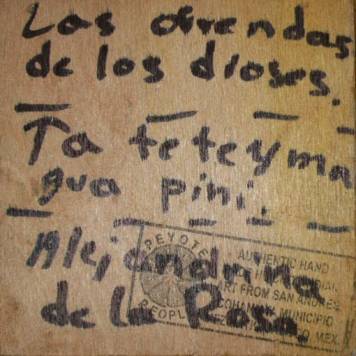 Las ofrendas
de los dioses.
Ta teteyma
gua pini.
Alejandrina
de la Rosa.
PEYOTE
PEOPLE
AUTHENTIC HAND
ART FROM SAN ANDRES
COHAMIATA, MUNICIPIO
MEX.